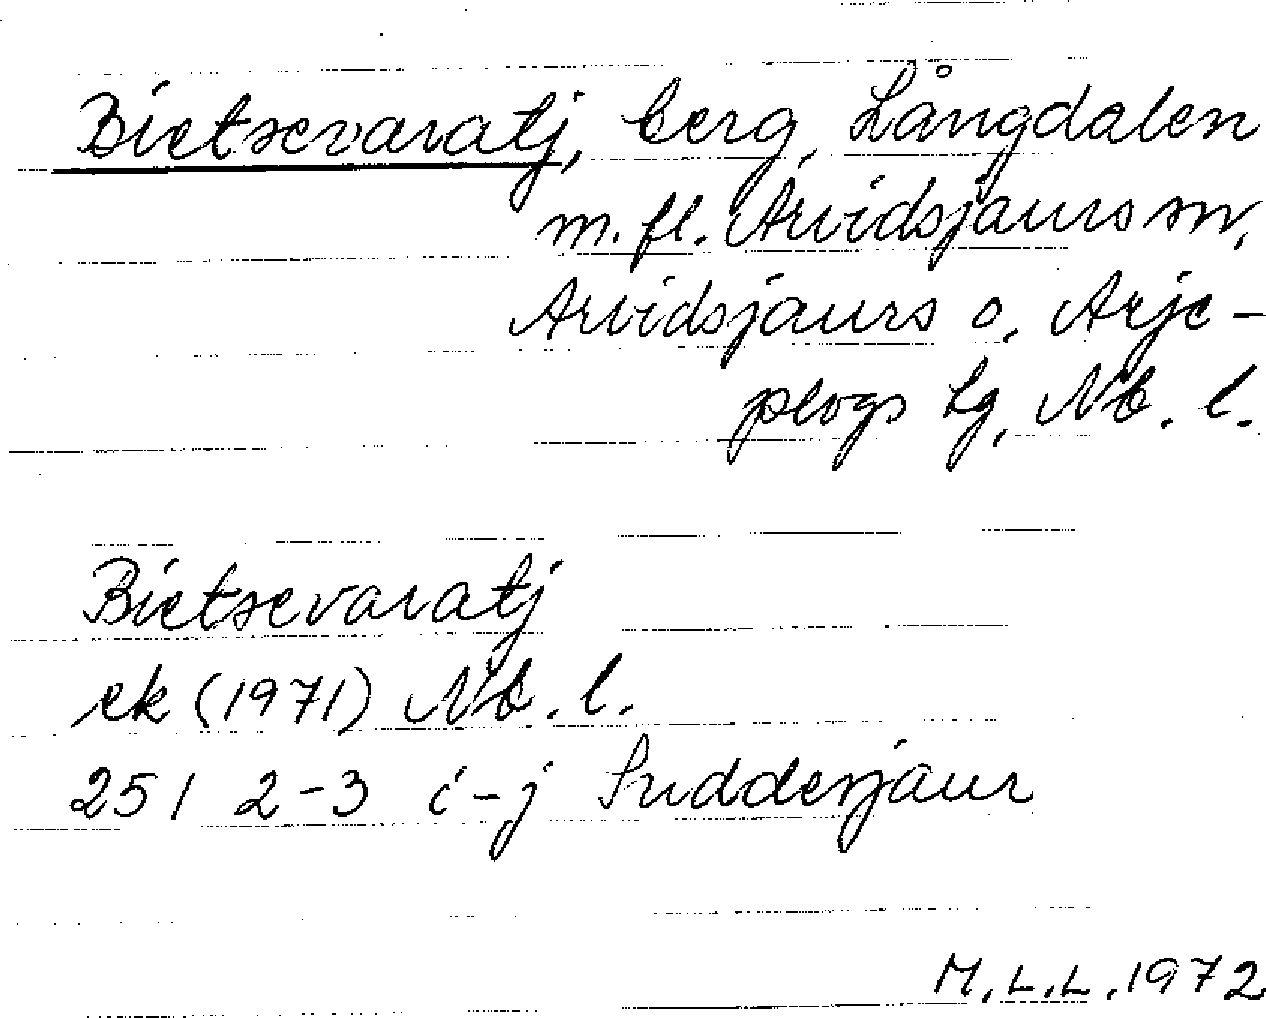 Bietsevaratj, berg, Långdalen
m.fl. Arvidsjaurs sn,
Arvidsjaurs o. Arje-
plogs tg, Nb. l.
Bietsevaratj
ek (1971) Nb. l.
25 I 2-3 i-j Suddesjaur
M.L.L. 1972